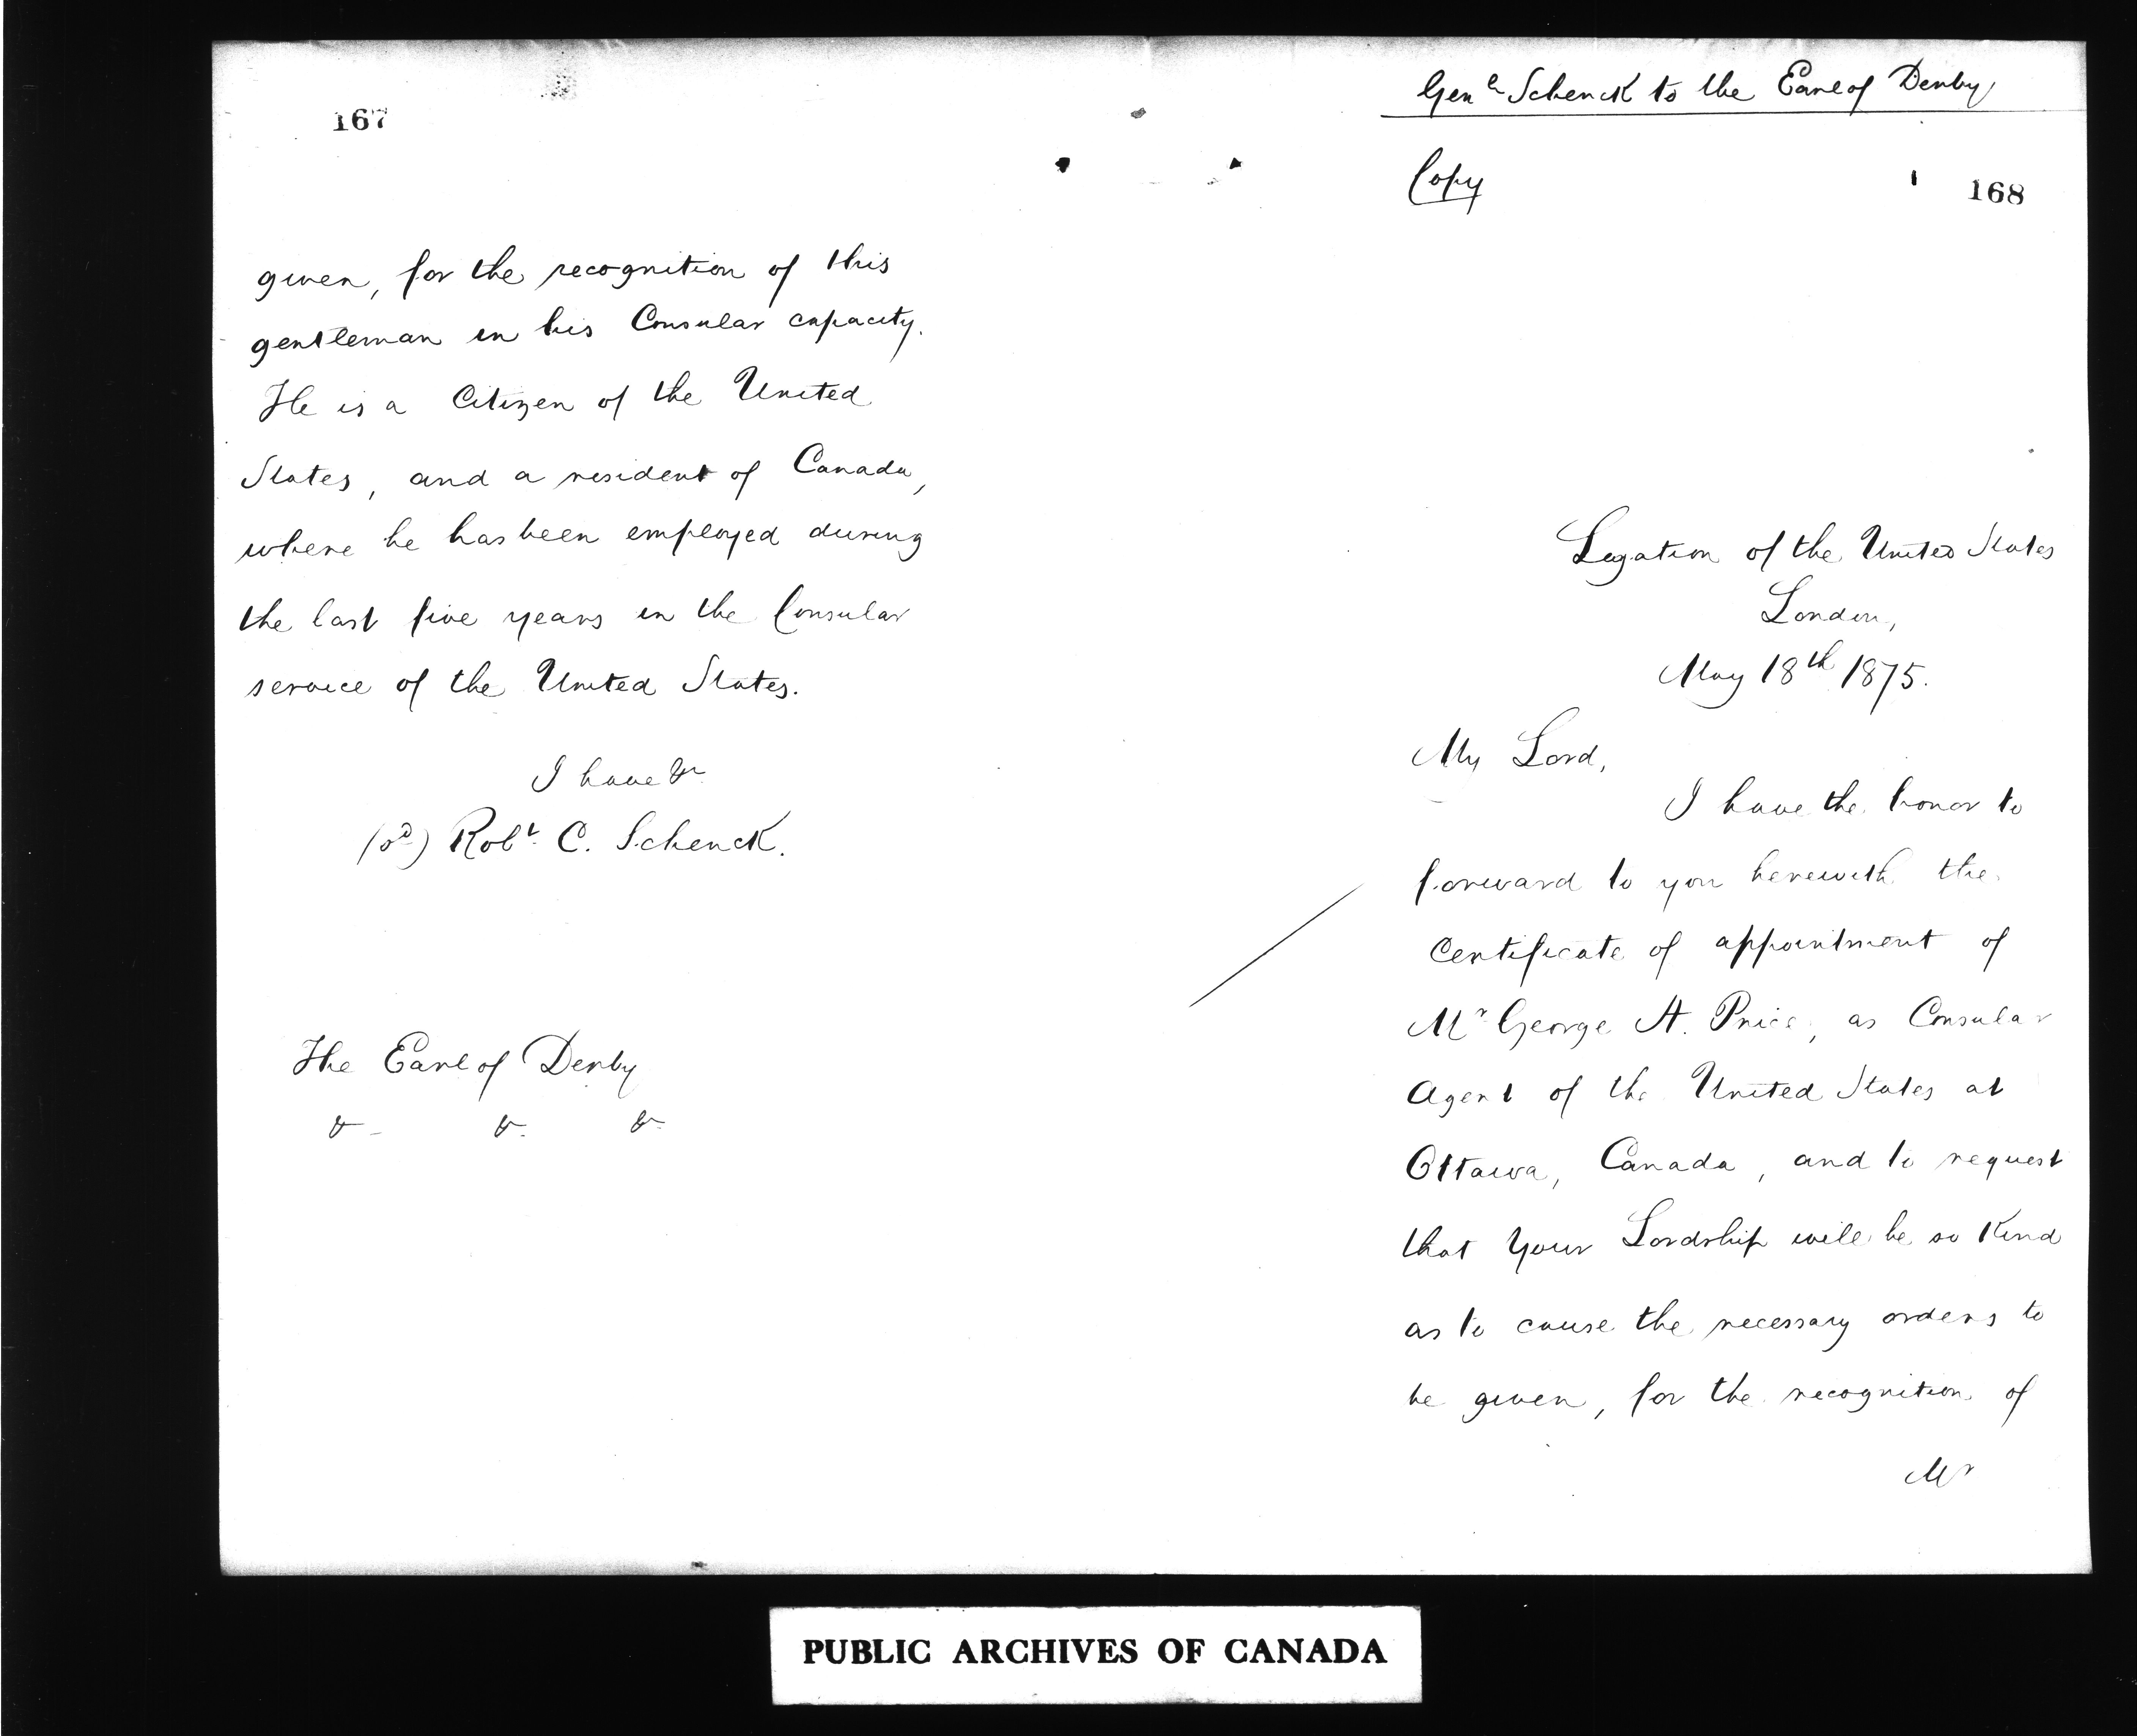 167
given, for the recognition of this
gentleman in his Consular capacity.
He is a Citizen of the United
States, and a resident of Canada,
where he has been employed during
the last five years in the Consular
service of the United States.
I have &c
(sd) Robt. C. Schenck.
The Earl of Derby
&c &c. &c.
Genl Schenck to the Earl of Derby
Copy
168
Legation of the United States
London,
May 18th 1875.
My Lord,
I have the honor to
forward to you herewith the
Certificate of appointment of
Mr George A. Price, as Consular
Agent of the United States at
Ottawa, Canada, and to request
that Your Lordship will be so kind
as to cause the necessary orders to
be given, for the recognition of
Mr
PUBLIC ARCHIVES OF CANADA